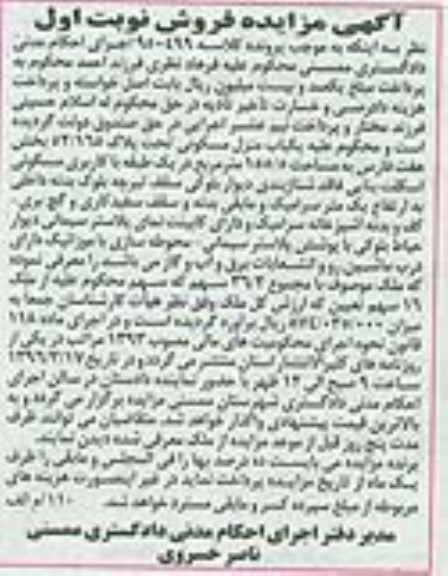 آگهی مزایده فروش نوبت اول
نظر به اینکه به موجب پرونده کلاسه ۹۵۰۴۹۹ اجرای احکام مدنی
دادگستری ممسنی محکوم علیه فرهاد نظری فرزند احمد محکوم به
پرداخت مبلغ یکصد و بیست میلیون ریال بابت اصل خواسته و پرداخت
هزینه دادرسی و خسارت تاخیر تادیه در حق محکوم له اسلام حسینی
فرزند مختار و پرداخت نیم عشر اجرایی در حق صندوق دولت گردیده
است و محکوم علیه یکباب منزل مسکونی تحت پلاک بخش
هفت فارس به مساحت مترمربع در یک طبقه با کاربری مسکونی
اسکلت بنایی فاقد شناژبندی دیوار بلوکی سقف تیرچه بلوک بدنه داخلی
به ارتفاع یک متر سرامیک و مابقی بدنه و سقف سفیدکاری و گچ بری
کف و بدنه آشپزخانه سرامیک و دارای کابینت نمای پلاستر سیمانی دیوار
حیاط بلوکی با پوشش پلاستر سیمانی محوطه سازی با موزائیک دارای
درب ماشین رو و انشعابات برق و آب و گاز می باشند را معرفی نموده
که ملک موصوف با مجموع سهم که سهم محکوم علیه از ملک
سهم تعیین که ارزش کل ملک وفق نظر هیأت کارشناسان جمعا به
میزان ریال برآورد گردیده است و در اجرای ماده ۱۱۸
قانون نحوه اجرای محکومیت های مالی مصوب ۱۳۹۳ مراتب در یکی از
روزنامه های کثیرالانتشار استان منتشر می گردد و در تاریخ ۱۳۹۶/۳/۱۷
ساعت ۹ صبح الی ۱۲ ظهر با حضور نماینده دادستان در سالن اجرای
احکام مدنی دادگستری شهرستان ممسنی مزایده برگزار می گردد و به
بالاترین قیمت پیشنهادی واگذار خواهد شد. متقاضیان می توانند ظرف
مدت پنج روز قبل از موعد مزایده از ملک معرفی شده دیدن نمایند.
برنده مزایده می بایست ده درصد بها را فی المجلس و مابقی را ظرف
یک ماه از تاریخ مزایده پرداخت نماید در غیر اینصورت هزینه های
مربوطه از مبلغ سپرده کسر و مابقی مسترد خواهد شد. ۱۱۰/م الف
مدیر دفتر اجرای احکام مدنی دادگستری ممسنی
ناصر خسروی